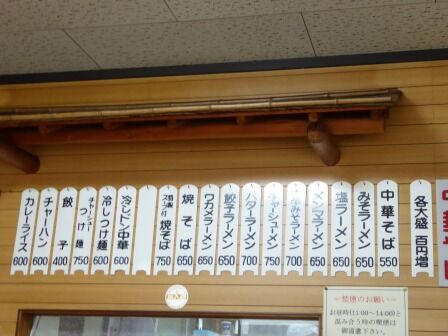 各大盛 百円増
中華そば 550
みそラーメン 650
塩ラーメン 650
メンマラーメン 650
ラーメン 700
チャーシューメン 750
バターラーメン 750
餃子ラーメン 650
ワカメラーメン 650
焼そば 650
特製スープ付 焼そば 750
冷しトン中華 600
冷しつけ麺 600
チャーシューつけ麺 750
餃子 400
チャーハン 600
カレーライス 600
－禁煙のお願い－
お昼時(11:00～14:00)と
混み合う時の喫煙は
御遠慮下さい。